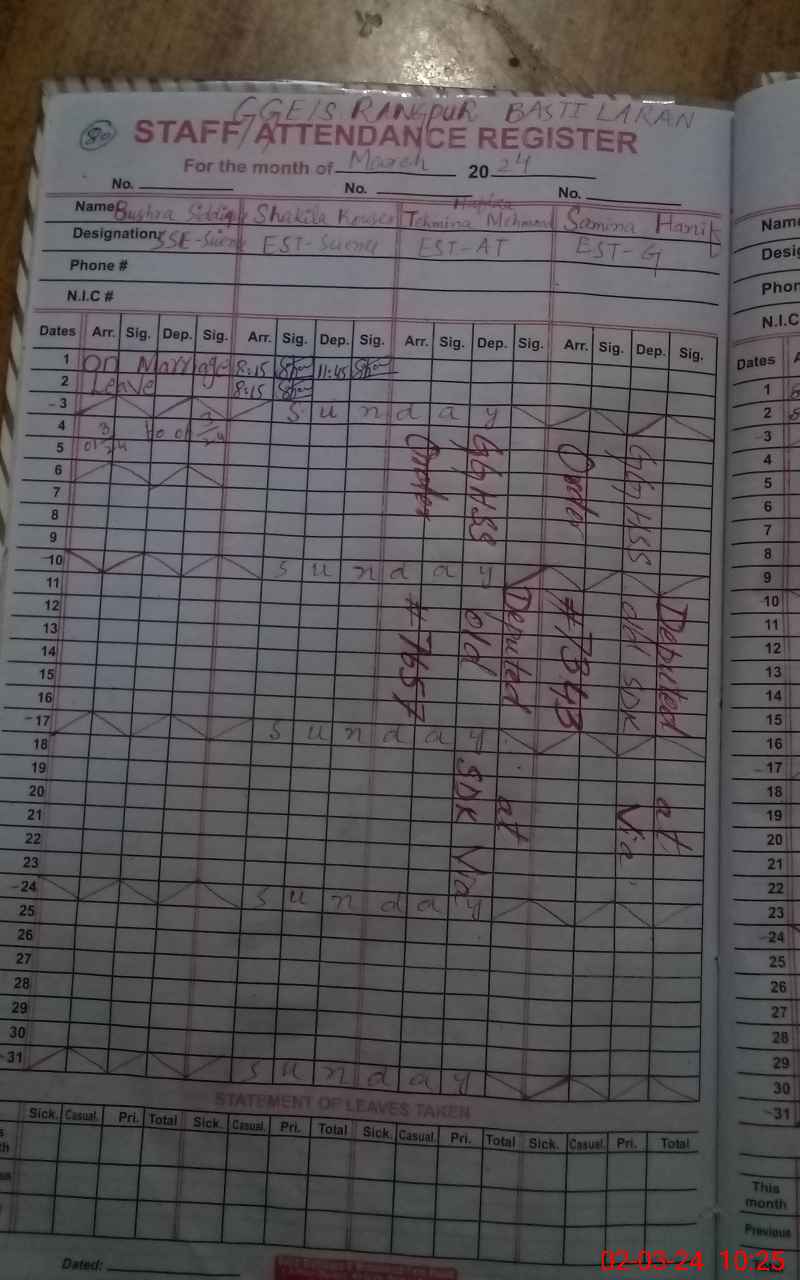 GGE/S RANGPUR BASTI LARAN
80
STAFF ATTENDANCE REGISTER
For the month of March 2024
No. No. No.
Name: Bushra Siddiq Shakila Kouser Tehmina Mehmood Samina Hanif
Designation: SSE- EST- EST-AT EST-G
Phone #
N.I.C #
Dates Arr. Sig. Dep. Sig. Arr. Sig. Dep. Sig. Arr. Sig. Dep. Sig. Arr. Sig. Dep. Sig.
1 On Marriage 8:15 11:45
2 Leave 8:15
3 Sunday
4
5
6
7
8
9
10 Sunday
11
12
13
14
15
16
17 Sunday
18
19
20
21
22
23
24 Sunday
25
26
27
28
29
30
31 Sunday
Deputed at
GGHSS old SDK Via
Order #7657
Deputed at
GGHSS old SDK Via
Order #7343
STATEMENT OF LEAVES TAKEN
Sick. Casual. Pri. Total Sick. Casual. Pri. Total Sick. Casual. Pri. Total Sick. Casual. Pri. Total
Dated:
Name
Desig
Phon
N.I.C
Dates
1
2
3
4
5
6
7
8
9
10
11
12
13
14
15
16
17
18
19
20
21
22
23
24
25
26
27
28
29
30
31
This
month
Previous
02-03-24 10:25